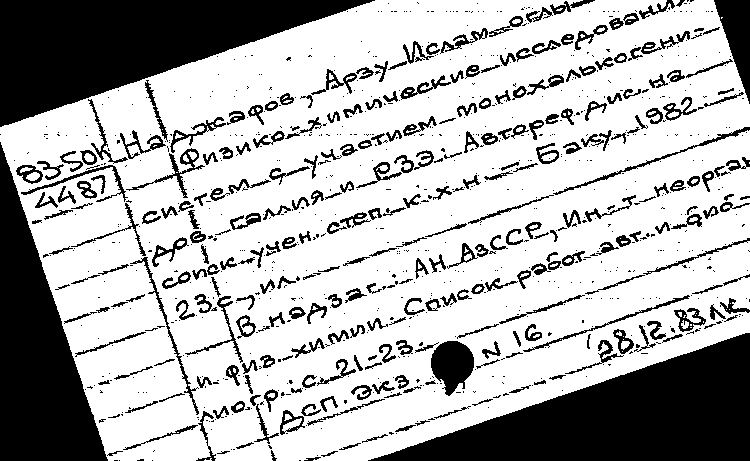 83-50К
4487
Наджафов, Арзу Ислам оглы
Физико-химические исследования
систем с участием монохалькогени-
дов галлия и РЗЭ: Автореф. дис. на
соиск. учен. степ. к.х.н. - Баку, 1982. -
23 с., ил.
В надзаг.: АН АзССР, Ин-т неорган
и физ. химии. Список работ авт. и биб-
лиогр.: с. 21-23.
ДСП. Экз. N 16.
28.12.83 ЛК